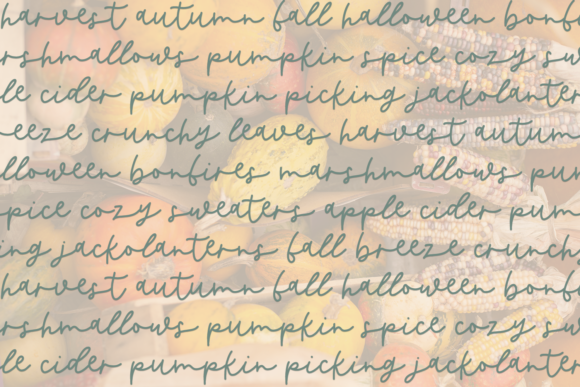 harvest autumn fall halloween bonfi
rshmallows pumpkin spice cozy sw
le cider pumpkin picking jackolantern
reeze crunchy leaves harvest autum
lloween bonfires marshmallows pum
spice cozy sweaters apple cider pum
ing jackolanterns fall breeze crunch
harvest autumn fall halloween bonfi
rshmallows pumpkin spice cozy sw
le cider pumpkin picking jackolantern